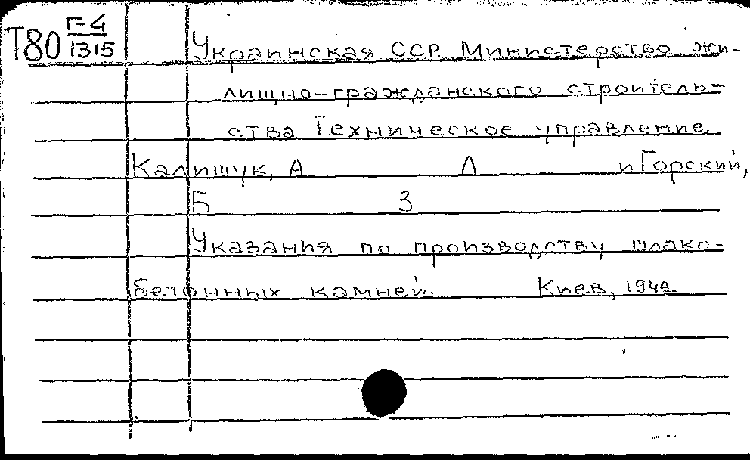 Т80 Г-4
1315
Украинская ССР. Министерство жи-
лищно-гражданского строитель-
ства Техническое управление
Калишук, А Л и Горский,
Б З
Указания по производству шлако-
бетонных камней. Киев,